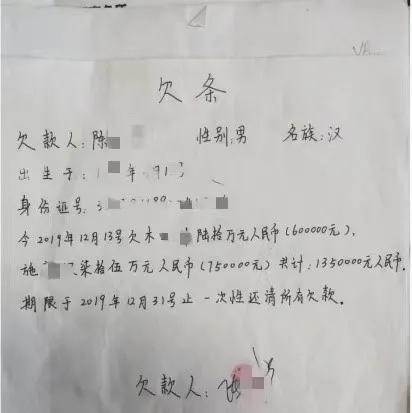 欠条
欠款人:陈 性别:男 名族:汉
出生于: 年 月1
身份证号:3
今2019年12月13号欠木 陆拾万元人民币(600000元),
施 柒拾伍万元人民币(750000元)共计:1350000元人民币.
期限于2019年12月31号止一次性还清所有欠款.
欠款人: